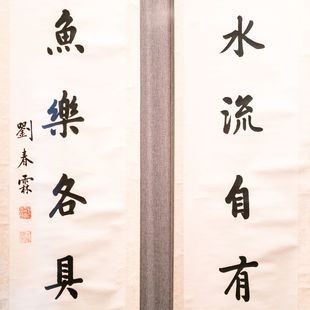 水流自有
魚樂各具
劉春霖